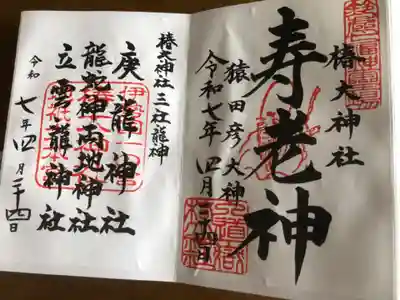 椿大神社
寿老神
猿田彦大神
令和七年四月廿四日
椿大神社 三社龍神
庚龍神社
龍蛇神雨地神社
立雲龍神社
令和七年四月二十四日